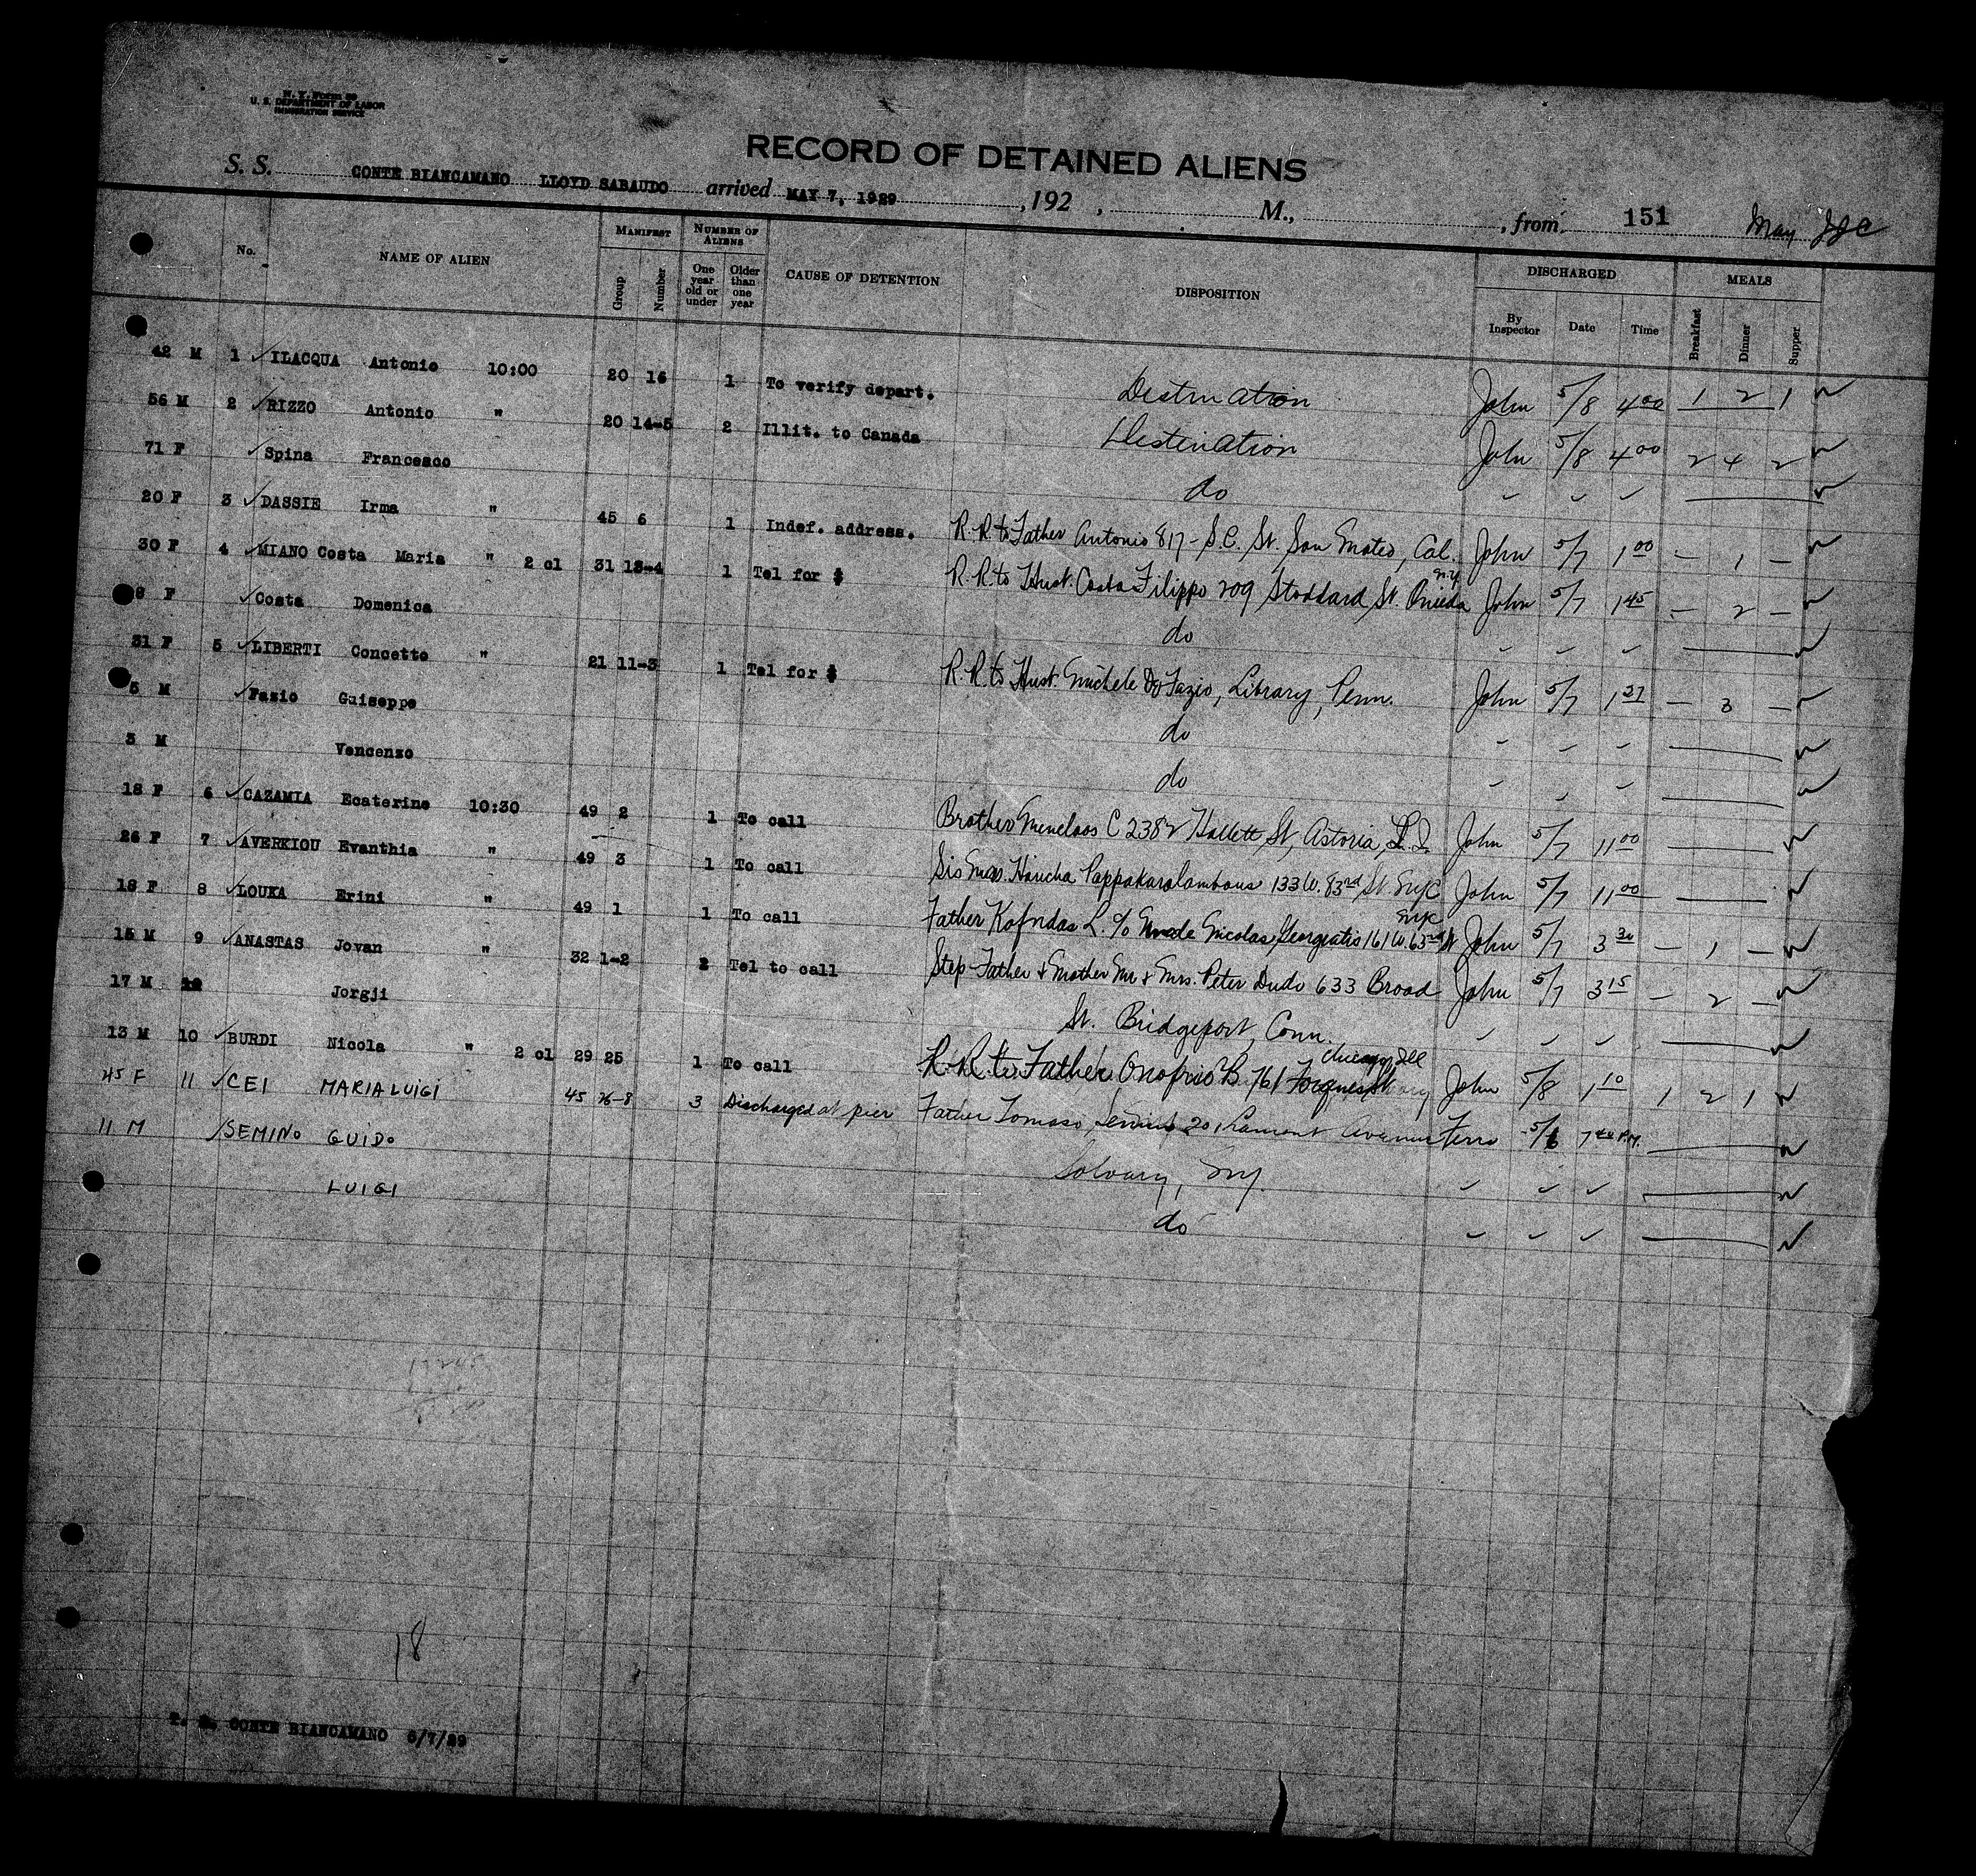 N. Y. Form 99
U. S. DEPARTMENT OF LABOR
IMMIGRATION SERVICE
RECORD OF DETAINED ALIENS
S. S. CONTE BIANCAMANO LLOYD SABAUDO arrived MAY 7, 1929 , 192 , M., , from 151 May
No. NAME OF ALIEN MANIFEST Group Number NUMBER OF ALIENS One year old or under Older than one year CAUSE OF DETENTION DISPOSITION DISCHARGED By Inspector Date Time MEALS Breakfast Dinner Supper
42 M 1 ✓ ILACQUA Antonio 10:00 20 16 1 To verify depart. Destination John 5/8 4 00 1 2 1
56 M 2 ✓ RIZZO Antonio " 20 14-5 2 Illit. to Canada Destination John 5/8 4 00 2 4 2
71 F ✓ Spina Francesco do ✓ ✓ ✓
20 F 3 ✓ DASSIE Irma " 45 6 1 Indef. address. R.R. to Father Antonio 817 - S.C. St. San Mateo, Cal. John 5/7 1 00 – 1 –
30 F 4 ✓ MIANO Costa Maria " 2 cl 31 13-4 1 Tel for $ R.R. to Hust. Costa Filippo 209 Stoddard St. Oneida N.Y. John 5/7 1 45 – 2 –
8 F ✓ Costa Domenica do ✓ ✓ ✓
31 F 5 ✓ LIBERTI Concetto " 21 11-3 1 Tel for $ R.R. to Hust. Michele Fazio, Library, Penn. John 5/7 1 27 – 3 –
5 M ✓ Fazio Guiseppe do
3 M Vencenzo do
18 F 6 ✓ CAZAMIA Ecaterine 10:30 49 2 1 To call Brother Menelaos C 2382 Hallett St, Astoria, L.I. John 5/7 11 00
26 F 7 ✓ AVERKIOU Evanthia " 49 3 1 To call Sis Mrs. Haricha Pappakaralambous 133 W. 83rd St NYC John 5/7 11 00
18 F 8 ✓ LOUKA Erini " 49 1 1 To call Father L. c/o Nicolas Georgiatis 161 W. 63rd St NYC John 5/7 3 30 – 1 –
15 M 9 ✓ ANASTAS Jovan " 32 1-2 2 Tel to call Step-Father & Mother Mr & Mrs. Peter Dudo 633 Broad John 5/7 3 15 – 2 –
17 M Jorgji St. Bridgeport, Conn. ✓ ✓ ✓
13 M 10 ✓ BURDI Nicola " 2 cl 29 25 1 To call R.R. to Father Onofrio B. 761 Forquer St Chicago Ill John 5/8 1 10 1 2 1
45 F 11 ✓ CEI MARIA LUIGI 45 26-8 3 Discharged at pier Father Tomaso, 201 Lamont Avenue Ferro 5/6 7 40 P.M.
11 M ✓ SEMINO GUIDO Solvay, N.Y. ✓ ✓ ✓
LUIGI do ✓ ✓ ✓
18
CONTE BIANCAMANO 5/7/29